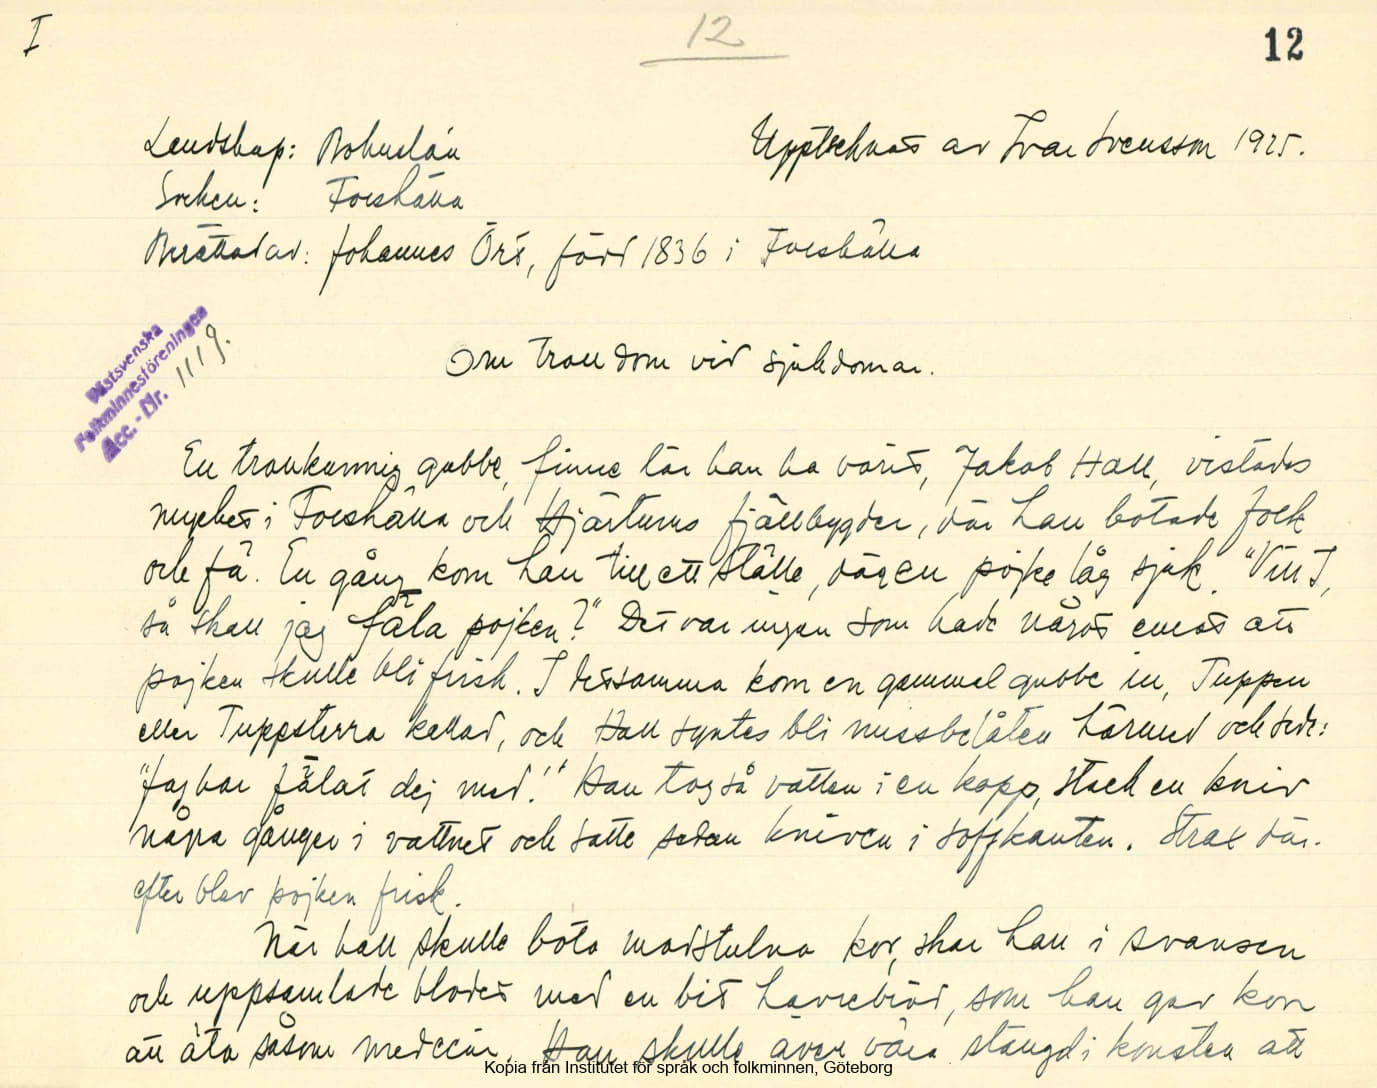 I
12
12
Landskap: Bohuslän
Upptecknat av Ivar Svensson 1925.
Socken: Foreshälla
Berättad av: Johannes Ört, född 1836 i Foreshälla
Västsvenska
Folkminnesföreningen
Acc.-Nr. 1119.
Om trolldom vid sjukdomar.
En trollkunnig gubbe, finne lär han ha varit, Jakob Hall, vistades
mycket i Foreshälla och Hjärtums fjällbygder, där han botade folk
och fä. En gång kom han till ett ställe, där en pojke låg sjuk. "Vill I,
så skall jag fäla pojken?" Det var ingen som hade något emot att
pojken skulle bli frisk. I detsamma kom en gammal gubbe in, Tuppen
eller Tuppsterra kallad, och Hall syntes bli missbelåten härmed och sade:
"Jag har fälat dej med!" Han tog så vatten i en kopp, stack en kniv
några gånger i vattnet och satte sedan kniven i soffkanten. Strax där-
efter blev pojken frisk.
När hall skulle bota modstulna kor, skar han i svansen
och uppsamlade blodet med en bit havrebröd, som han gav kon
att äta såsom medecin. Han skulle även vara stängd i konsten att
Kopia från Institutet för språk och folkminnen, Göteborg